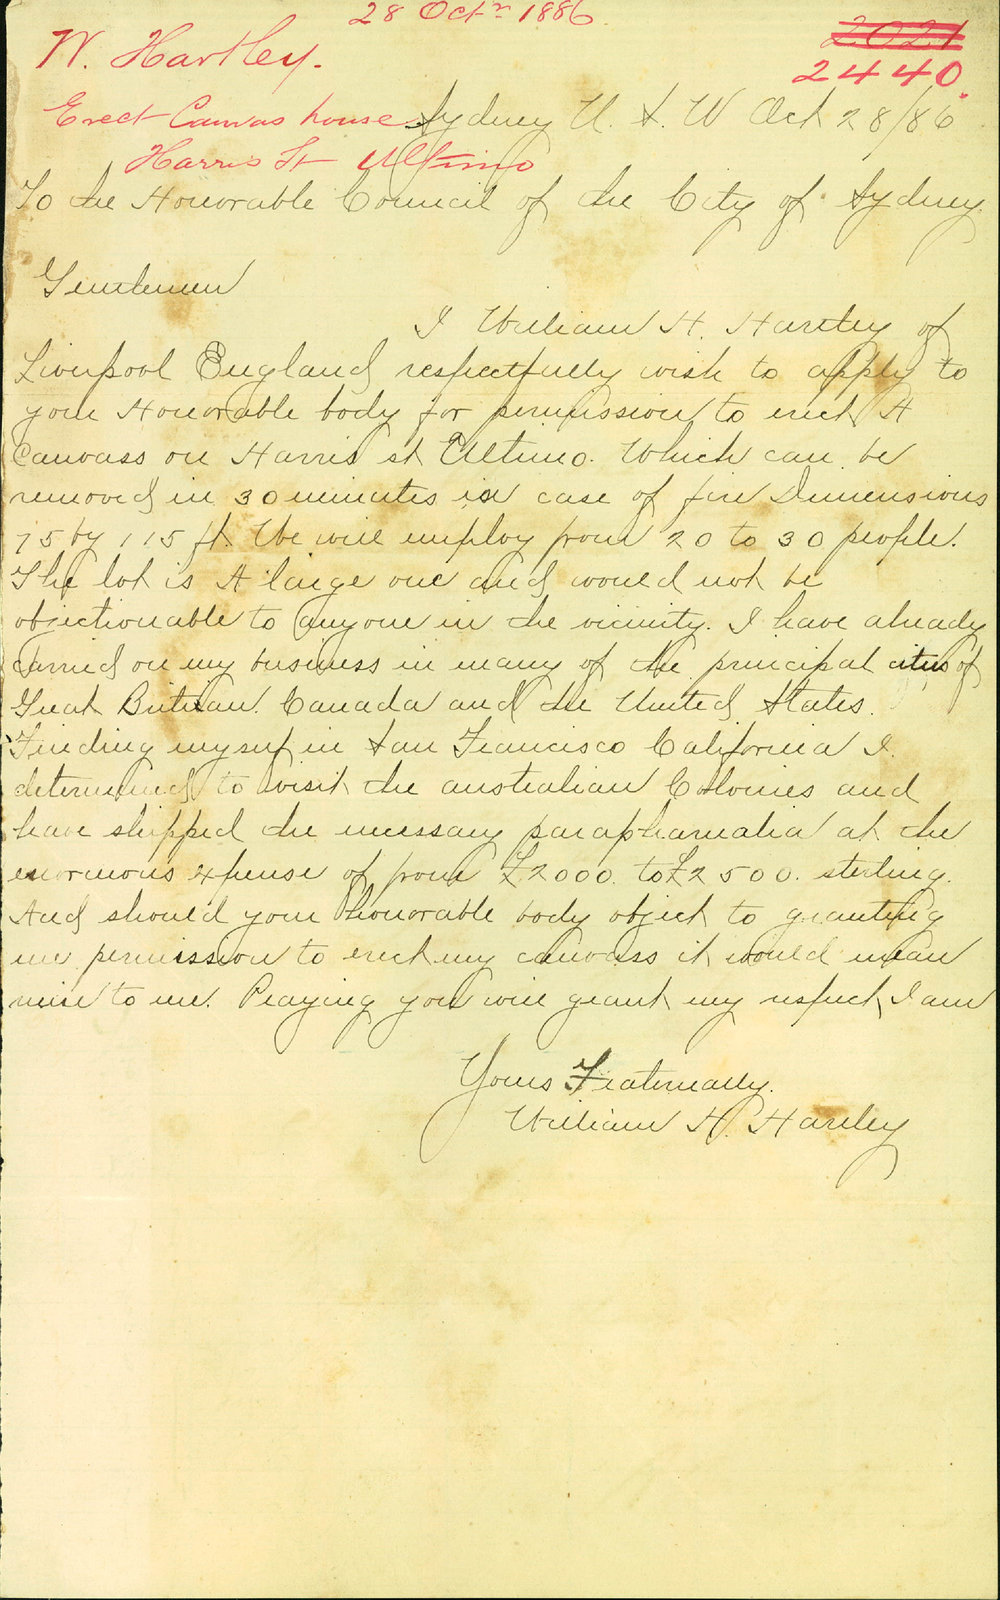 28 Octr 1886.
W. Hartley.
2021
2440.
Erect Canvas house
Harris St Ultimo
Sydney N. S. W Oct 28/86
To the Honorable Council of the City of Sydney.
Gentlemen
I William H. Hartley of
Liverpool England respectfully wish to apply to
your Honorable body for permission to erect A
Canvass on Harris st Ultimo. Which can be
removed in 30 minutes in case of fire Dimensions
75 by 115 ft. We will employ from 20 to 30 people.
The lot is A large one and would not be
objectionable to anyone in the vicinity. I have already
carried on my business in many of the principal cities of
Great Britian. Canada and the United States.
Finding myself in San Francisco California I
determined to visit the australian Colonies and
have shipped the necessary parapharnalia at the
enormous expense of from £2000. to £2500. sterling.
And should your honorable body object to granting
me permission to erect my canvass it would mean
ruin to me. Praying you will grant my request, I am
Yours Fraternally.
William H. Hartley